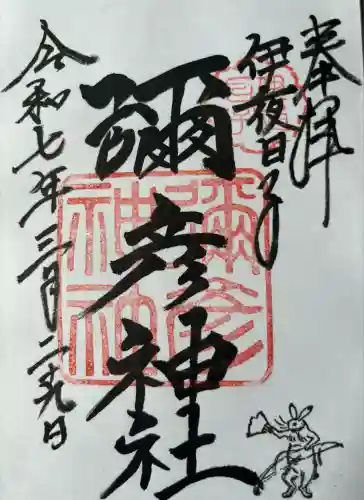 奉拝
伊夜日子
彌彦神社
令和七年三月二九日
彌彦神社